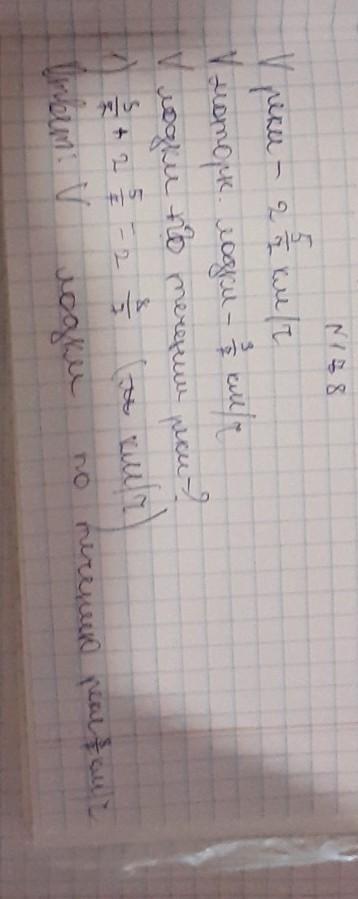 N 178
V реки - 2 5/7 км/ч
V моторк. лодки - 3/7 км/ч
V лодки по течении реки-?
1) 3/7 + 2 5/7 = 2 8/7 (км/ч)
Ответ: V лодки по течению реки 8/7 км/ч